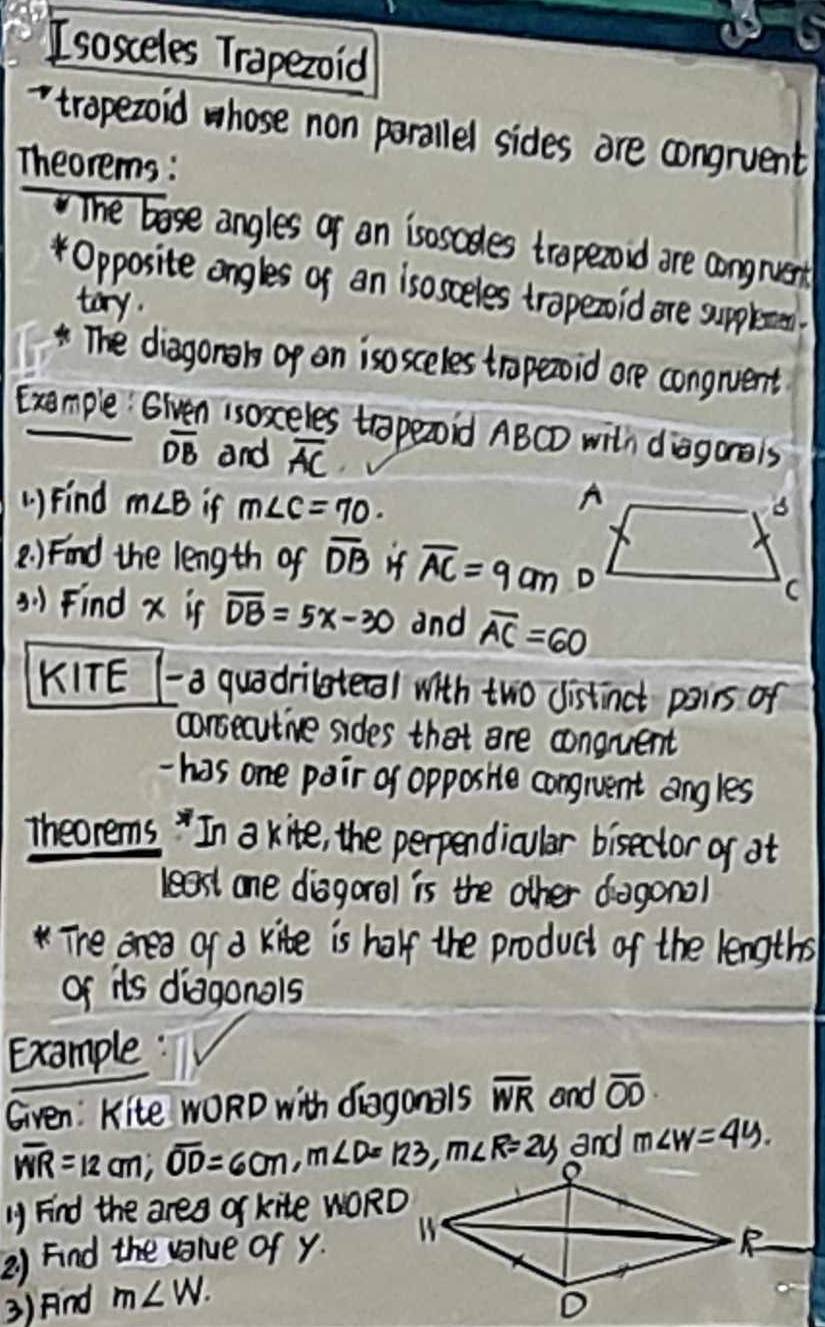 Isosceles Trapezoid
→ trapezoid whose non parallel sides are congruent
Theorems:
* The base angles of an isosceles trapezoid are congruent
* Opposite angles of an isosceles trapezoid are supplemen-
tary.
* The diagonals of an isosceles trapezoid are congruent.
Example: Given isosceles trapezoid ABCD with diagonals
D̅B̅ and A̅C̅. ✓
1.) Find m∠B if m∠C = 70.
2.) Find the length of D̅B̅ if A̅C̅ = 9 cm
3.) Find x if D̅B̅ = 5x-30 and A̅C̅ = 60
A B
D C
KITE - a quadrilateral with two distinct pairs of
consecutive sides that are congruent
- has one pair of opposite congruent angles
Theorems * In a kite, the perpendicular bisector of at
least one diagonal is the other diagonal
* The area of a kite is half the product of the lengths
of its diagonals
Example: ✓
Given: Kite WORD with diagonals W̅R̅ and O̅D̅.
W̅R̅ = 12 cm; O̅D̅ = 6cm, m∠D= 123, m∠R= 2y and m∠W= 4y.
1) Find the area of kite WORD
2.) Find the value of y.
3) Find m∠W.
O
W R
D